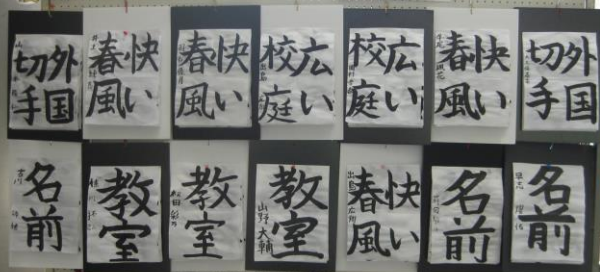 外国
切手
快い
春風
快い
春風
広い
校庭
広い
校庭
快い
春風
外国
切手
名前
教室
教室
教室
山野大輔
快い
春風
名前
名前